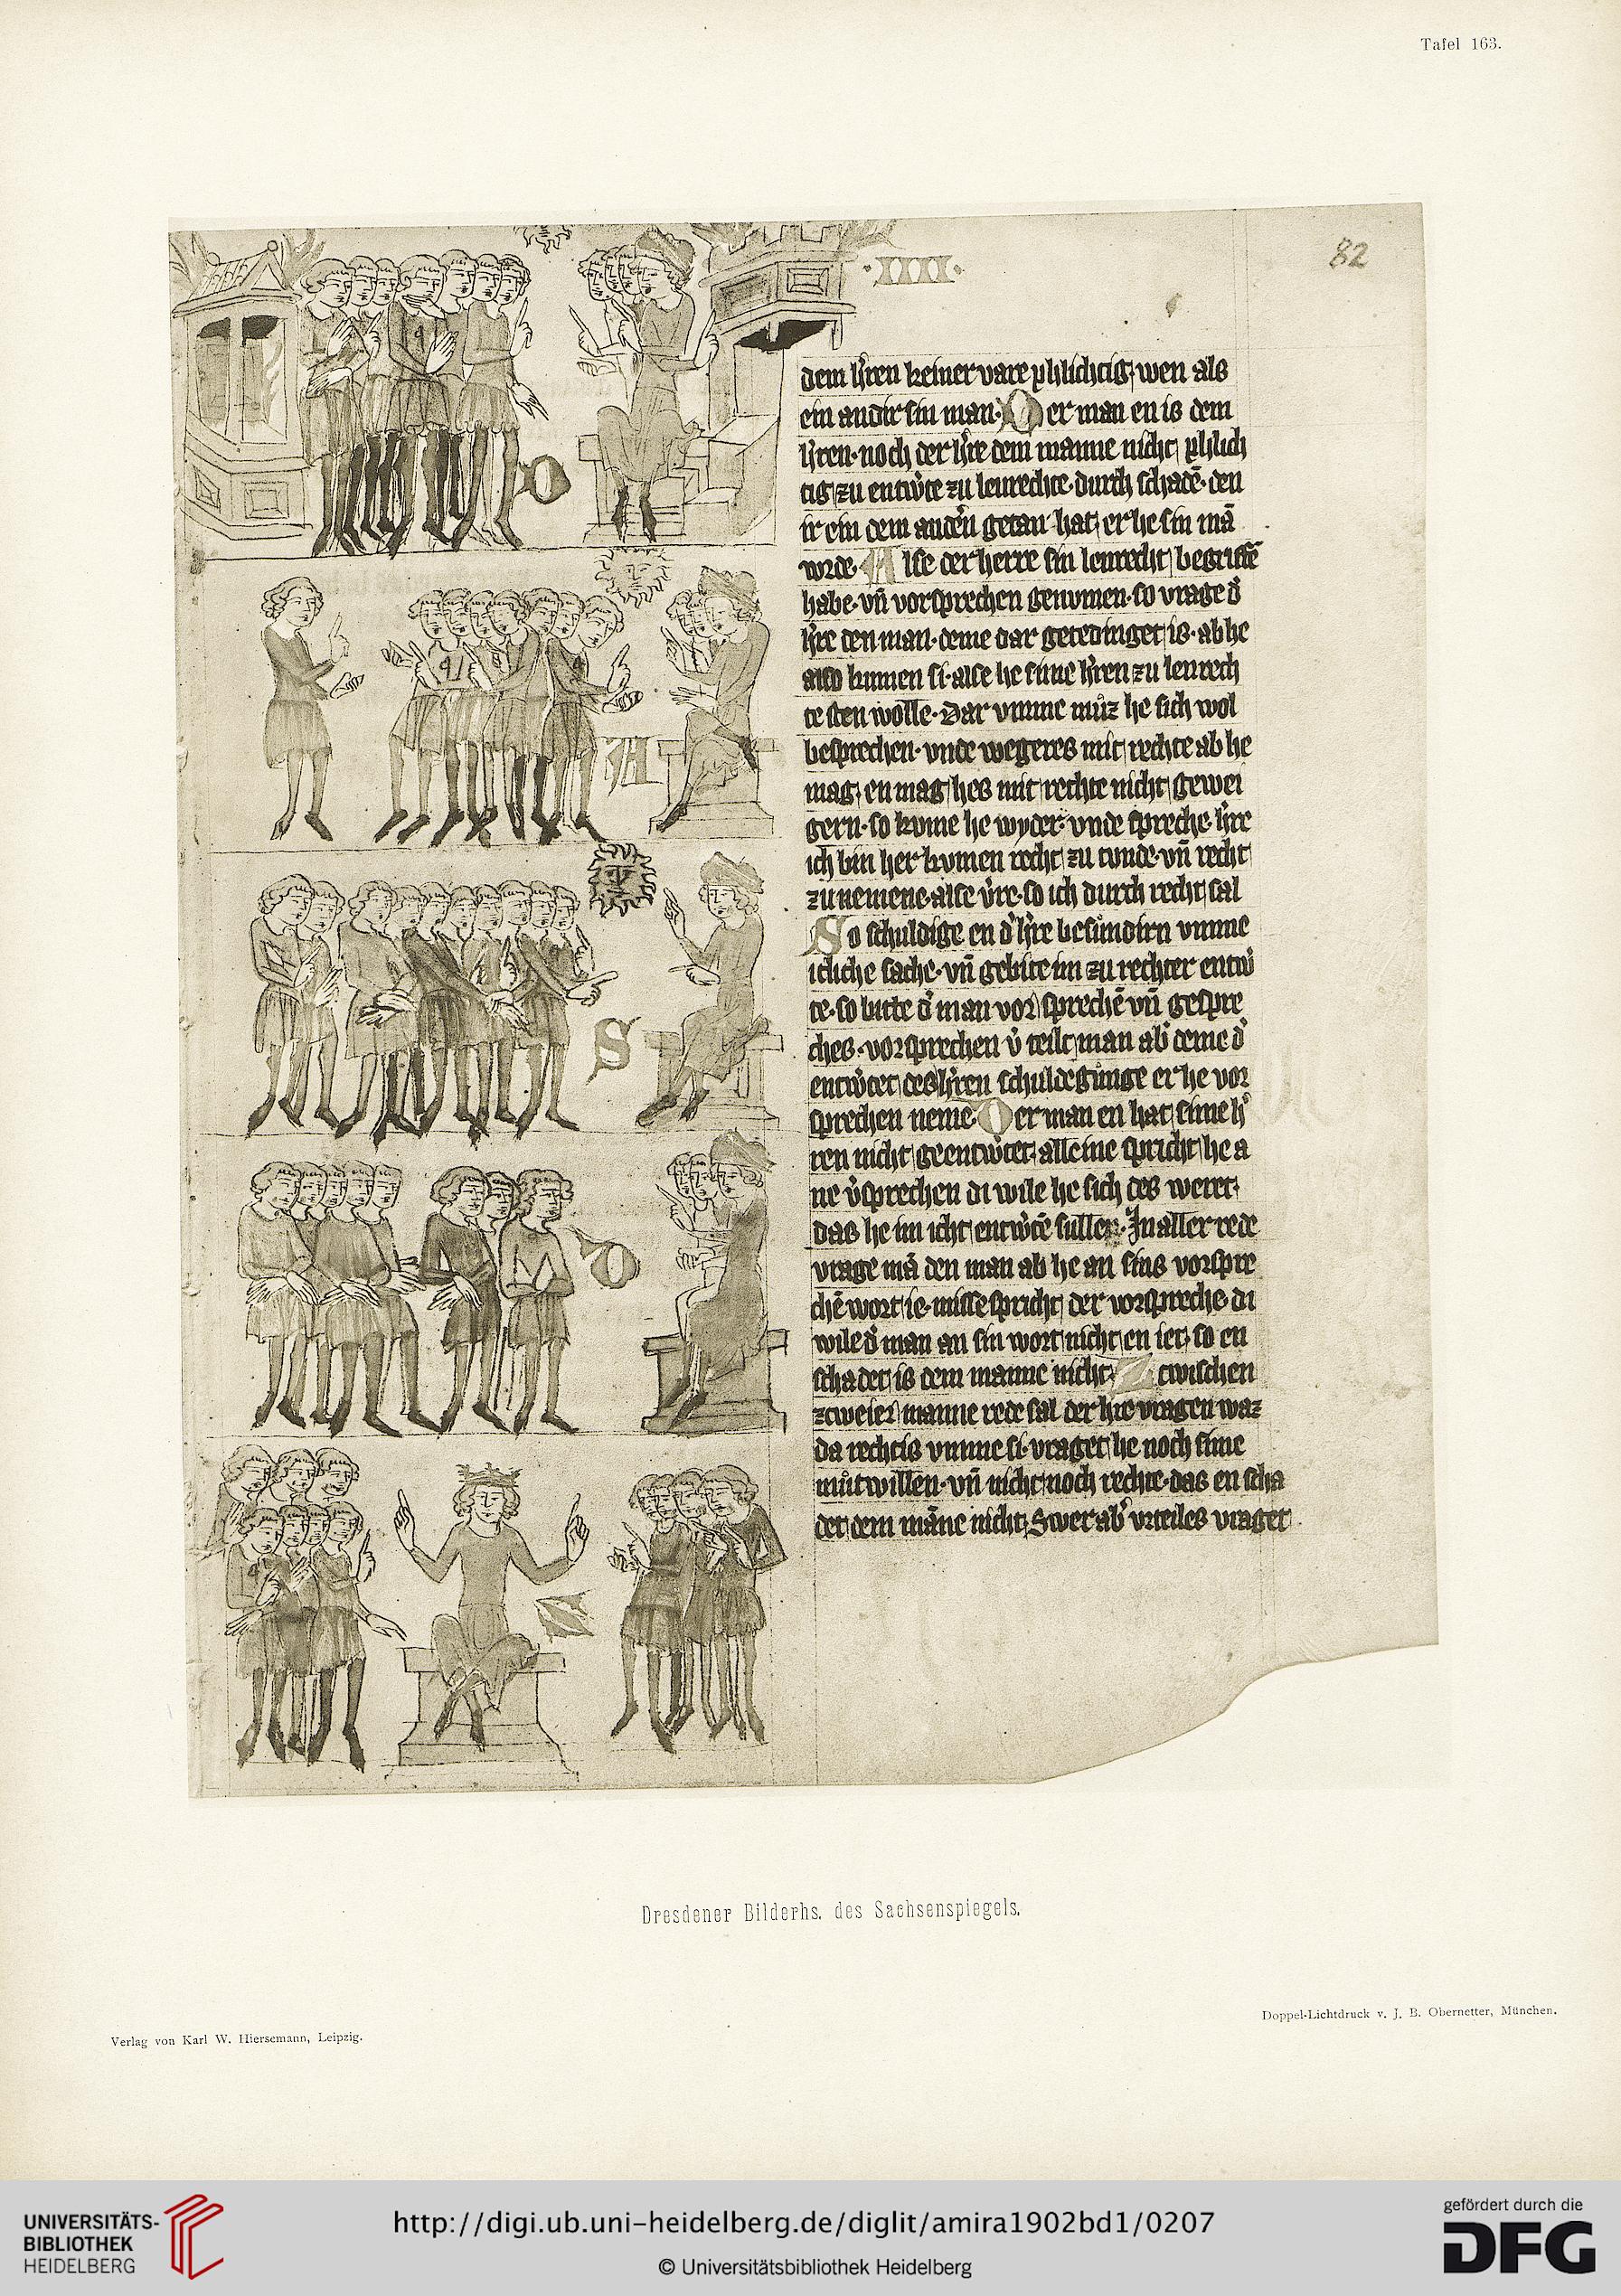 Tafel 163.
82
·IIII·
dem h'ren keiner vare phlichtig, wen als
ein andir sin man. Der man en is dem
h'ren. noch der h're dem manne nicht phlich
tig zu entw'te zu lenrechte. durch schadē. den
ir ein dem andē'n getan hat, er he sin mā
wrde. Alse der herre sin lenrecht begriffē
habe. vn̄ vorsprechen genumen. so vrage d'
h're den man. deme dar geteidinget is. ab he
also kumen si. alse he sime h'ren zu lenrech
te sten wolle. Dar vmme můz he sich wol
besprechen. vnde wegeres mit rechte ab he
mag, en mag hes mit rechte nicht gewei
gern. so kume he wyder. vnde spreche. h're
ich bin her kumen recht zu tunde. vn̄ recht
zu nemene. alse v're. so ich durch recht sal
So schuldige en d' h're besundirn vmme
icliche sache. vn̄ gebite im zu rechter entw'
te. so bitte d' man vorsprechē vn̄ gespre
ches. vorsprechen v'teilt man ab' deme d'
entw'tet des h'ren schuldegunge er he vor
sprechen neme. Der man en hat sime h'
ren nicht geentw'tet, alleine spricht he a
ne v'sprechen di wile he sich des weret,
das he im icht entw'tē sulle. In aller rede
vrage mā den man ab he an sins vorspre
chē wort ie. missespricht der vorspreche. di
wile d' man an sin wort nicht en iet, so en
schadet is dem manne nicht. Zcwischen
zcweier manne rede sal der h're vragen waz
da rechtis vmme si. vraget he noch sime
můtwillen. vn̄ nicht noch rechte. das en scha
det dem māne nicht. Swer ab' vrteiles vraget
D
A
S
D
Z
Dresdener Bilderhs. des Sachsenspiegels.
Doppel-Lichtdruck v. J. B. Obernetter, München.
Verlag von Karl W. Hiersemann, Leipzig.
UNIVERSITÄTS-
BIBLIOTHEK
HEIDELBERG
http://digi.ub.uni-heidelberg.de/diglit/amira1902bd1/0207
© Universitätsbibliothek Heidelberg
gefördert durch die
DFG